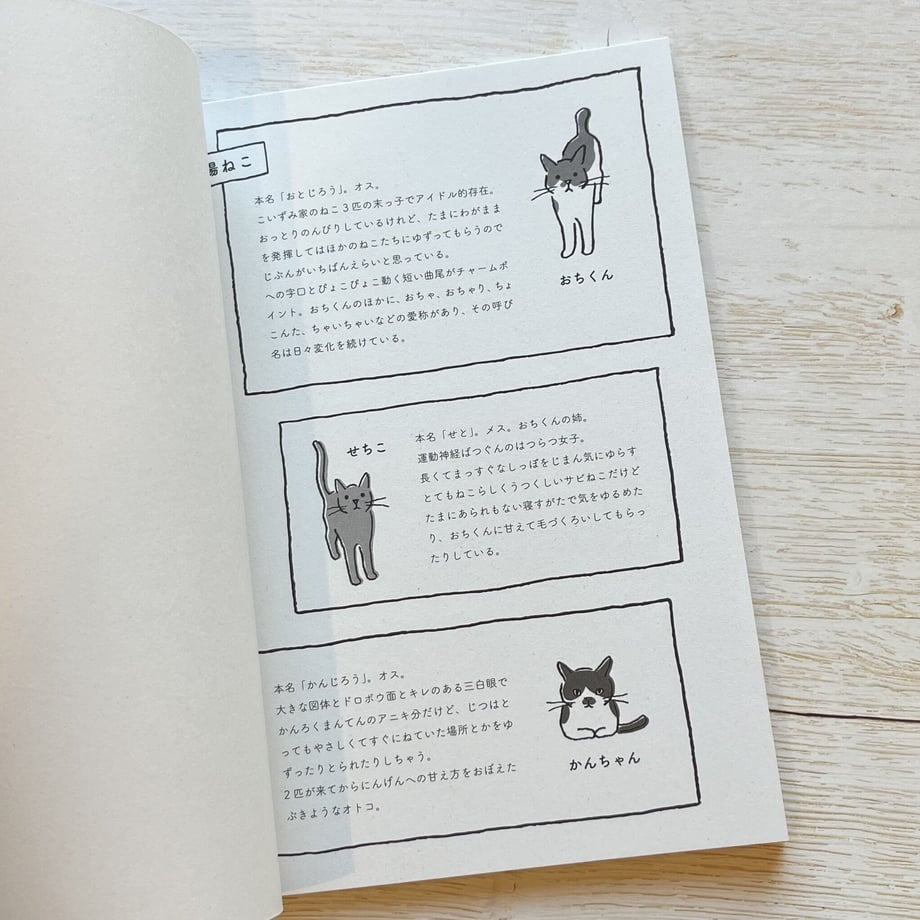 場ねこ
本名「おとじろう」。オス。
こいずみ家のねこ3匹の末っ子でアイドル的存在。
おっとりのんびりしているけれど、たまにわがまま
を発揮してはほかのねこたちにゆずってもらうので
じぶんがいちばんえらいと思っている。
への字口とぴょこぴょこ動く短い曲尾がチャームポ
イント。おちくんのほかに、おちゃ、おちゃり、ちょ
こんた、ちゃいちゃいなどの愛称があり、その呼び
名は日々変化を続けている。
おちくん
せちこ
本名「せと」。メス。おちくんの姉。
運動神経ばつぐんのはつらつ女子。
長くてまっすぐなしっぽをじまん気にゆらす
とてもねこらしくうつくしいサビねこだけど
たまにあられもない寝すがたで気をゆるめた
り、おちくんに甘えて毛づくろいしてもらっ
たりしている。
本名「かんじろう」。オス。
大きな図体とドロボウ面とキレのある三白眼で
かんろくまんてんのアニキ分だけど、じつはと
ってもやさしくてすぐにねていた場所とかをゆ
ずったりとられたりしちゃう。
2匹が来てからにんげんへの甘え方をおぼえた
ぶきようなオトコ。
かんちゃん